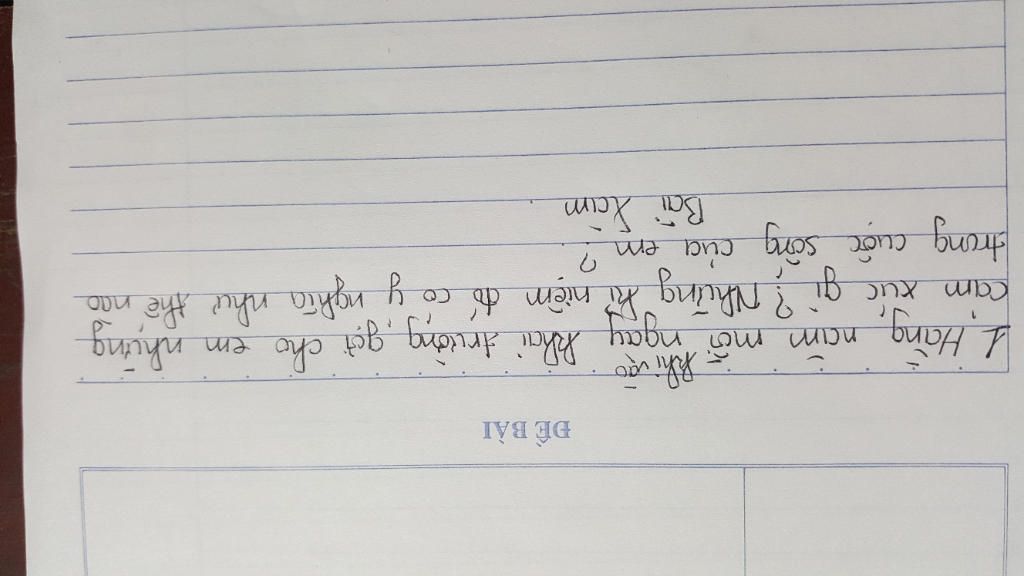 ĐỀ BÀI
khi vào
1. Hàng năm mỗi ngày khai trường gợi cho em những
cảm xúc gì? Những kỉ niệm đó có ý nghĩa như thế nào
trong cuộc sống của em?
Bài làm